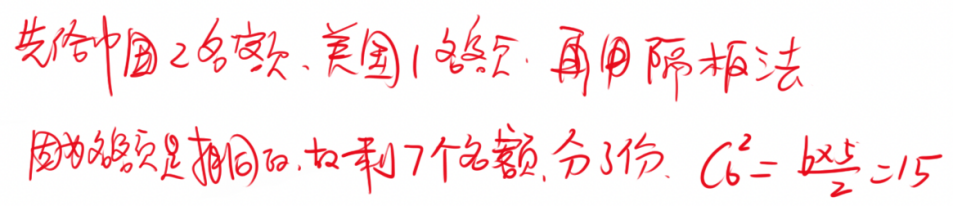 先给中国2名额、美国1名额. 再用隔板法
因为名额是相同的, 故剩7个名额, 分3份. C₆² = 6×5/2 = 15